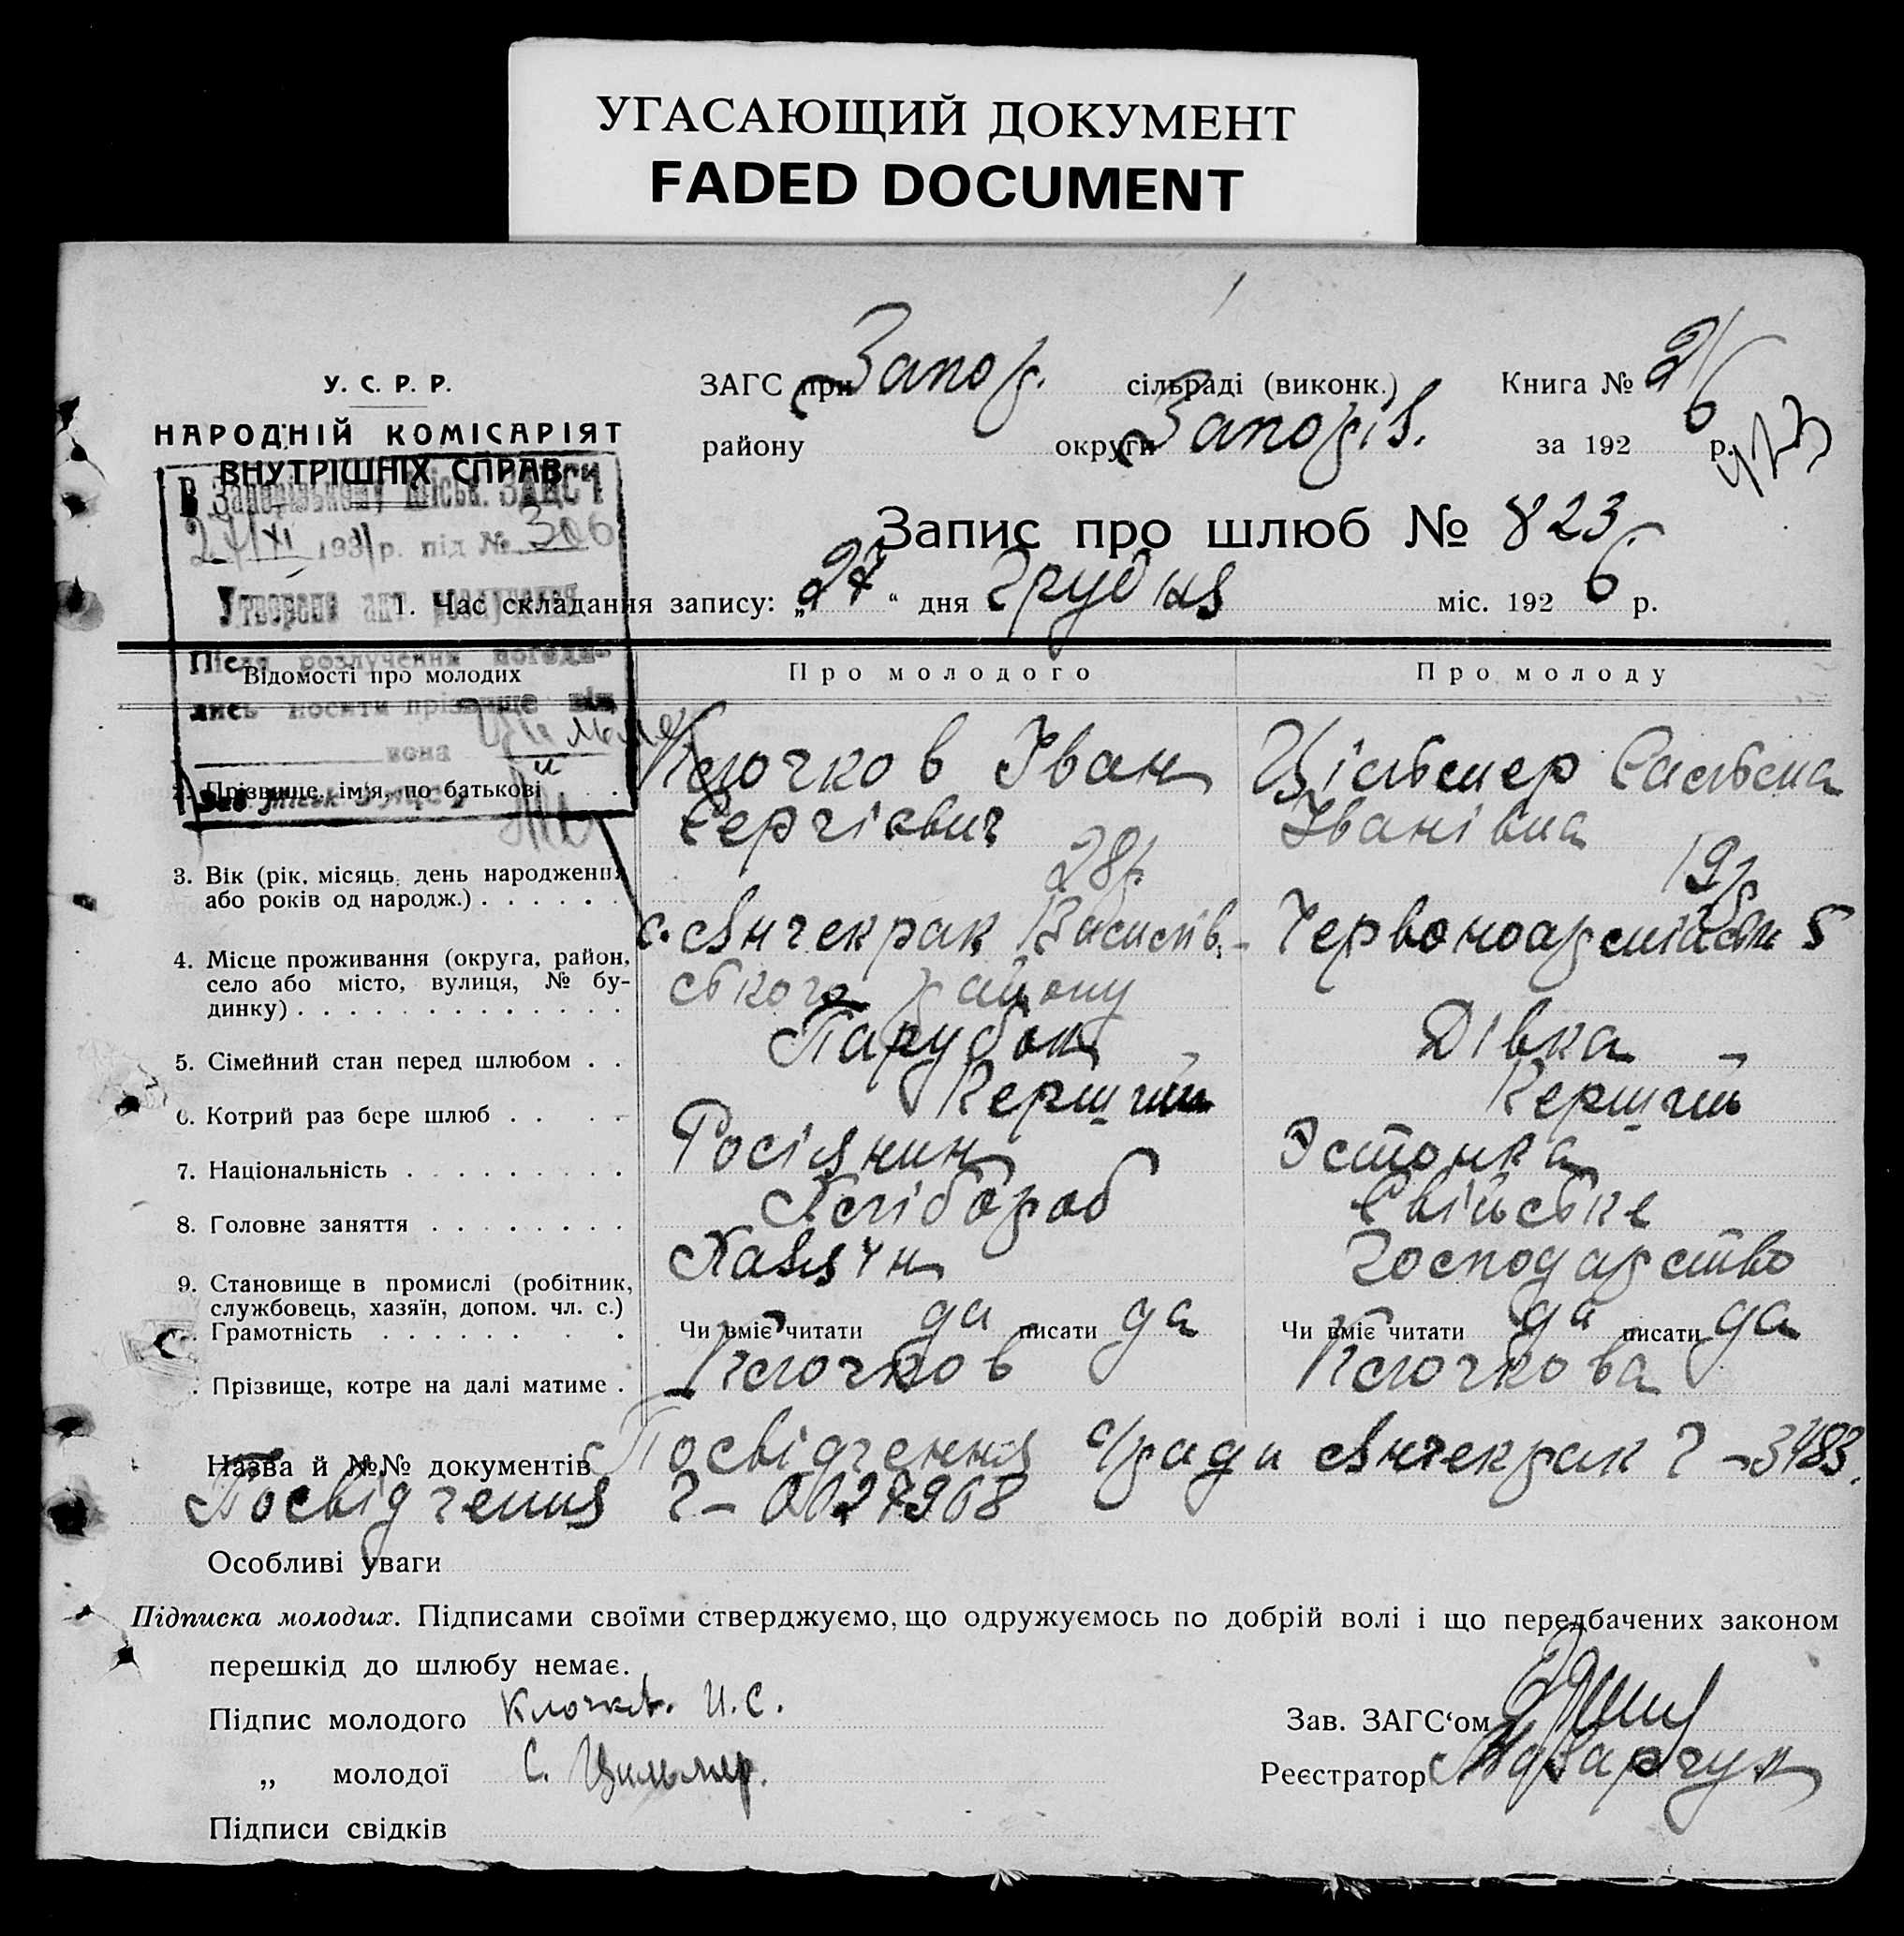 УГАСАЮЩИЙ ДОКУМЕНТ
FADED DOCUMENT
У. С. Р. Р.
НАРОДНІЙ КОМІСАРІЯТ
ВНУТРІШНІХ СПРАВ
ЗАГС при Запор. сільраді (виконк.) Книга № 2/6
району округи Запоріз. за 1926 р.
Запис про шлюб № 823
В Запорізькому Міськ. ЗАЦСі
27/XI 1931 р. під № 306
Утворено акт розлучення
Після розлучення погоди-
лись носити прізвище він
вона
1. Час складання запису: „27“ дня Грудня міс. 1926 р.
Відомості про молодих Про молодого Про молоду
2. Прізвище, ім'я, по батькові Клочков Іван Сергієвич
Цільмер Сальма Іванівна
3. Вік (рік, місяць, день народження або років од народж.) 28р. 19р.
4. Місце проживання (округа, район, село або місто, вулиця, № будинку) с. Янчекрак Василівського району
Червоноармійська 5
5. Сімейний стан перед шлюбом Парубок Дівка
6. Котрий раз бере шлюб Перший Перший
7. Національність Росіянин Эстонка
8. Головне заняття Хлібороб Свійське
9. Становище в промислі (робітник, службовець, хазяїн, допом. чл. с.) Хазяїн Господарство
Грамотність Чи вміє читати да писати да Чи вміє читати да писати да
Прізвище, котре на далі матиме Клочков Клочкова
Назва й №№ документів Посвідчення с/ради Янчекрак Ч – 3483.
Посвідчення Ч –
Особливі уваги
Підписка молодих. Підписами своїми стверджуємо, що одружуємось по добрій волі і що передбачених законом
перешкід до шлюбу немає.
Підпис молодого Клочков. И.С. Зав. ЗАГС'ом
„ молодої С. Цильмер. Реєстратор Назарчук
Підписи свідків